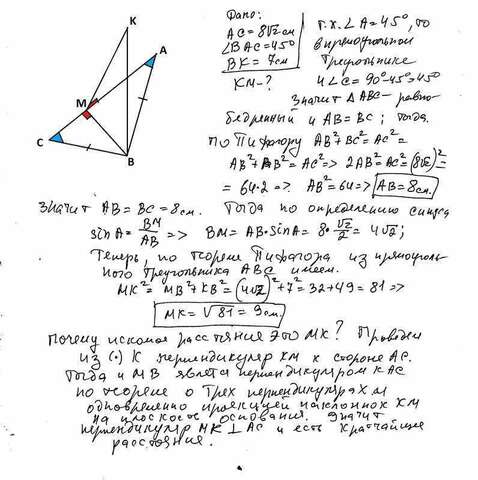 K
A
M
C
B
Дано:
AC = 8√2 см
∠BAC = 45°
BK = 7 см
KM - ?
т.к. ∠A = 45°, то
в прямоугольном
треугольнике
и ∠C = 90° - 45° = 45°
Значит △ABC - равно-
бедренный и AB = BC; тогда
по Пифагору AB² + BC² = AC² =
AB² + AB² = AC² => 2AB² = AC² = (8√2)² =
= 64·2 => AB² = 64 => AB = 8 см.
Значит AB = BC = 8 см. Тогда по определению синуса
sin A = BM/AB => BM = AB·sin A = 8·√2/2 = 4√2;
Теперь, по теореме Пифагора из прямоуголь-
ного треугольника ABC имеем.
MK² = MB² + KB² = (4√2)² + 7² = 32 + 49 = 81 =>
MK = √81 = 9 см.
Почему искомая расстояние это MK? Проведём
из (·) K перпендикуляр KM к стороне AC.
Тогда и MB является перпендикуляром к AC
по теореме о трех перпендикулярах и
одновременно проекцией наклонной KM
на плоскость основания. Значит
перпендикуляр MK ⊥ AC и есть кратчайшее
расстояние.